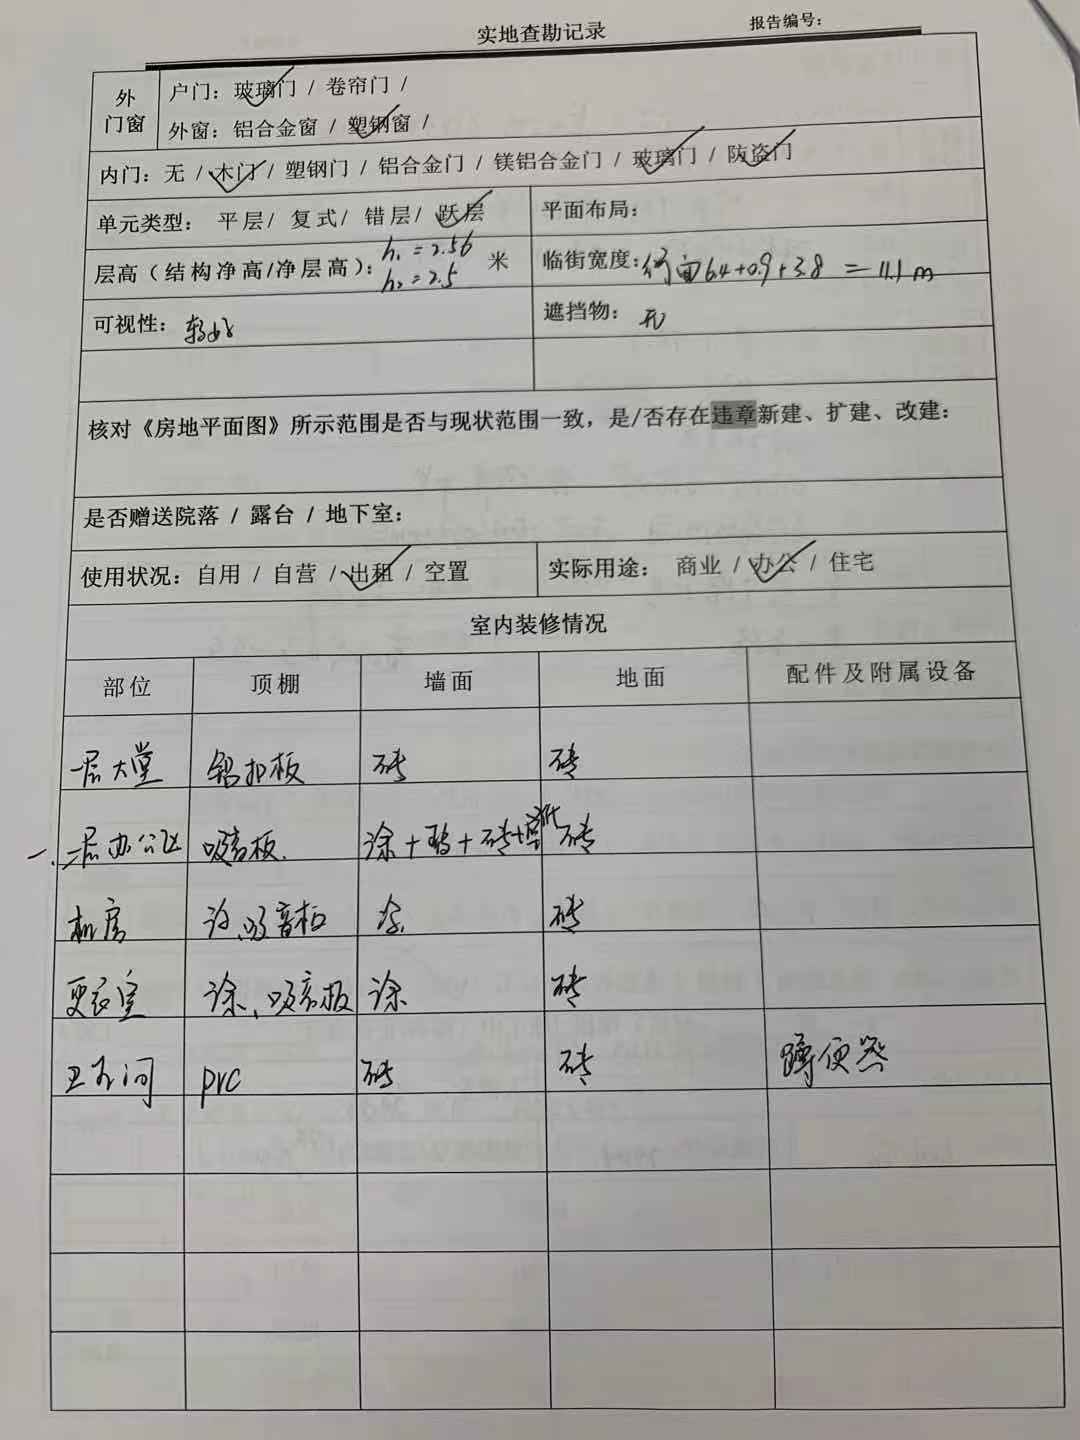 实地查勘记录
报告编号：
外门窗
户门：玻璃门 / 卷帘门 /
外窗：铝合金窗 / 塑钢窗 /
内门：无 / 木门 / 塑钢门 / 铝合金门 / 镁铝合金门 / 玻璃门 / 防盗门
单元类型： 平层/ 复式/ 错层/ 跃层
平面布局：
层高（结构净高/净层高）：h₁=2.56 h₂=2.5 米
临街宽度：面6.4+0.9+3.8 = 11.1 m
可视性：较好
遮挡物：无
核对《房地平面图》所示范围是否与现状范围一致，是/否存在违章新建、扩建、改建：
是否赠送院落 / 露台 / 地下室：
使用状况：自用 / 自营 / 出租 / 空置
实际用途： 商业 / 办公 / 住宅
室内装修情况
部位 顶棚 墙面 地面 配件及附属设备
一层大堂 铝扣板 砖 砖
一、二层办公区 吸音板 涂+ +砖+ 砖
机房 涂、吸音板 涂 砖
更衣室 涂、吸音板 涂 砖
卫生间 pvc 砖 砖 蹲便器